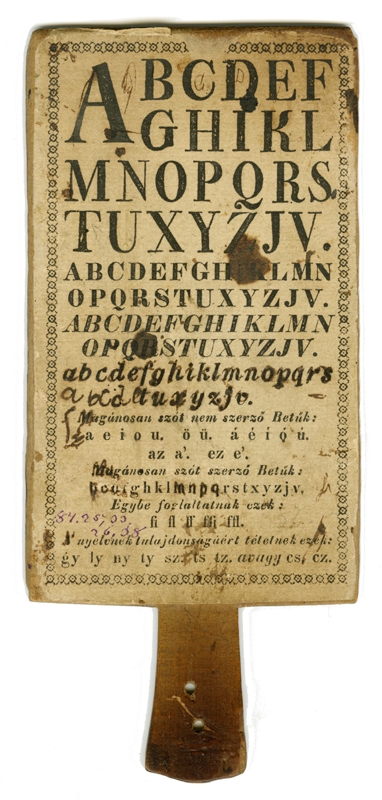 ABCDEF
GHIKL
MNOPQRS
TUXYZJV.
ABCDEFGHIKLMN
OPQRSTUXYZJV.
ABCDEFGHIKLMN
OPQRSTUXYZJV.
abcdefghiklmnopqrs
tuxyzjv.
Magánosan szót nem szerző Betűk:
a e i o u. ö ü. á é í ó ú.
az a'. ez e'.
Magánosan szót szerző Betűk:
bcdfghklmnpqrstxyzjv,
Egybe foglaltatnak ezek:
fi fl ff ffi ffl.
A' nyelvnek tulajdonságáért tétetnek ezek:
gy ly ny ty sz ts tz. avagy cs, cz.